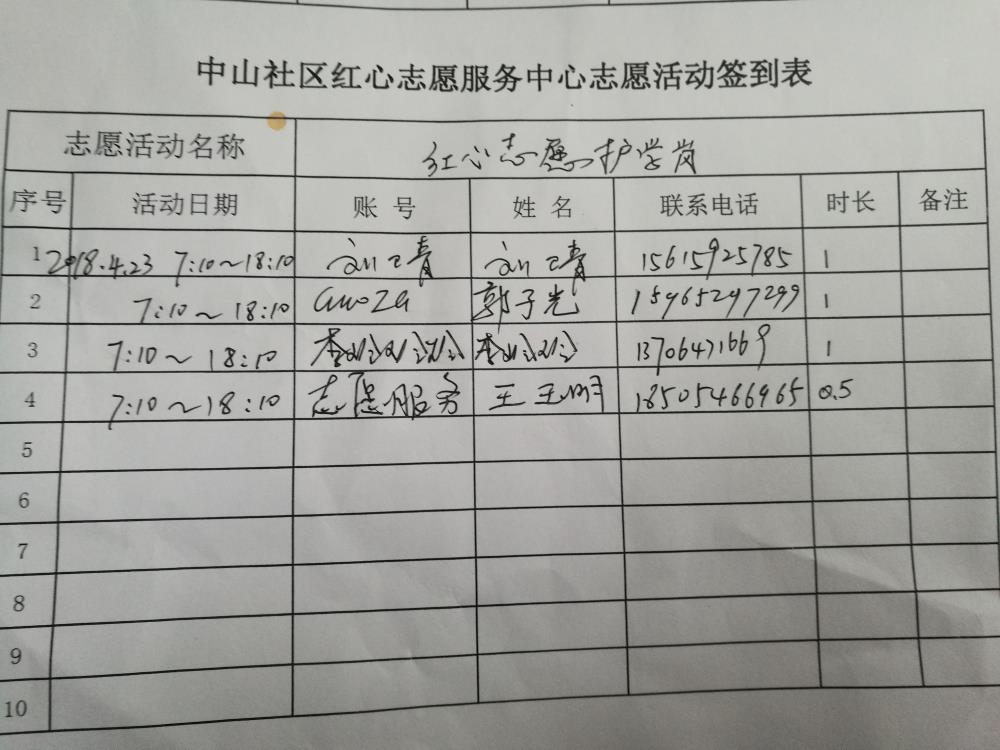 中山社区红心志愿服务中心志愿活动签到表
志愿活动名称 红心志愿护学岗
序号 活动日期 账号 姓名 联系电话 时长 备注
1 2018.4.23 7:10~18:10 15615925785 1
2 7:10~18:10 郭子光 15965297299 1
3 7:10~18:10 13706471669 1
4 7:10~18:10 志愿服务 王玉明 18505466965 0.5
5
6
7
8
9
10